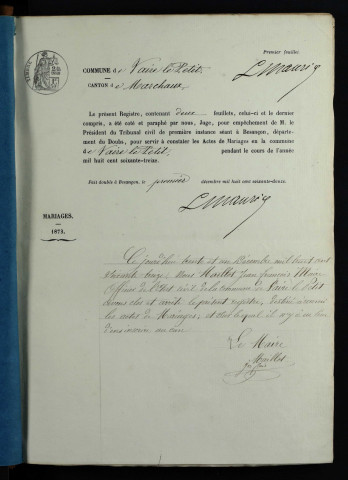 Premier feuillet.
COMMUNE de Vaire-le-Petit
CANTON de Marchaux
Le présent Registre, contenant deux feuillets, celui-ci et le dernier
compris, a été coté et paraphé par nous, Juge, pour empêchement de M. le
Président du Tribunal civil de première instance séant à Besançon, départe-
ment du Doubs, pour servir à constater les Actes de Mariages en la commune
de Vaire-le-Petit pendant le cours de l'année
mil huit cent soixante-treize.
Fait double à Besançon, le premier décembre mil huit cent soixante-douze.
MARIAGES.
1873.
Ce jourd'hui trente et un Décembre mil huit cent
soixante treize Nous Maillot Jean François Maire
Officier de l'Etat civil de la commune de Vaire le Petit
avons clos et arrêté le présent registre, destiné à recevoir
les actes de Mariages, et sur lequel il n'y a eu lieu
d'en inscrire aucun
Le Maire
Maillot